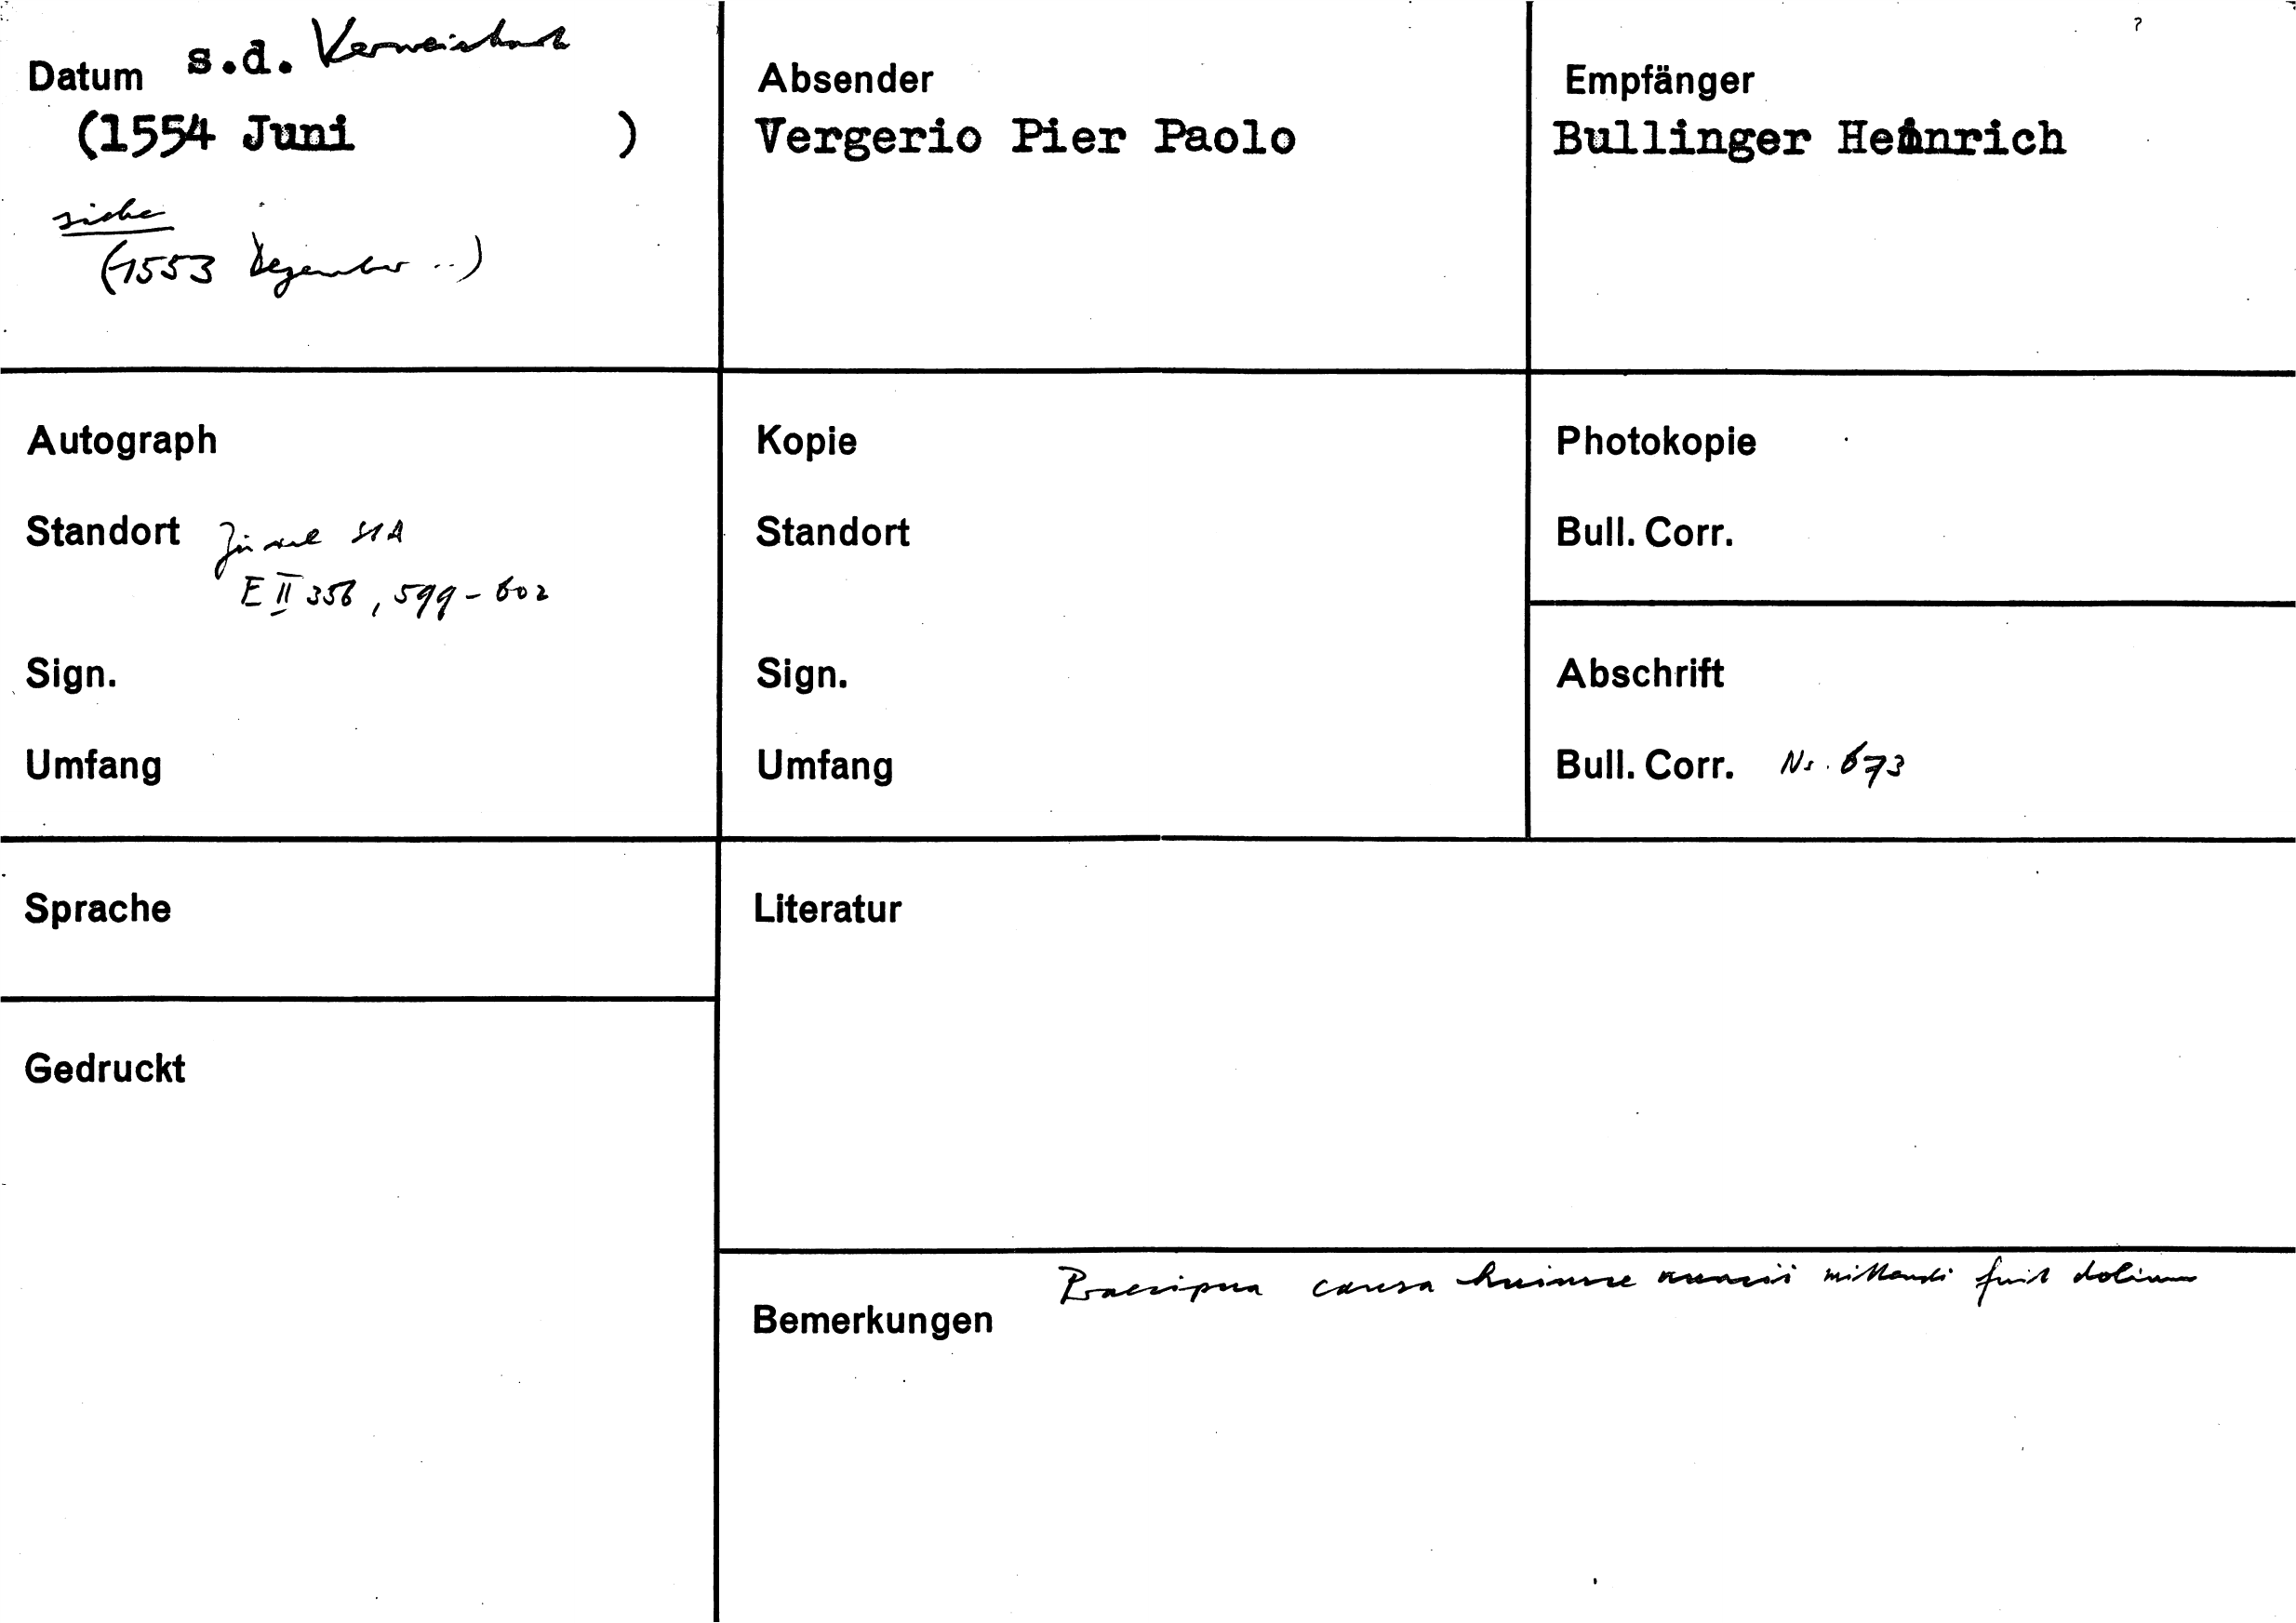 Datum s.d. Verweiskarte
(1554 Juni )
siehe
(1553 Dezember ..)
Absender
Vergerio Pier Paolo
?
Empfänger
Bullinger Heinrich
Autograph
Standort Zürich StA
E II 356, 599-602
Sign.
Umfang
Kopie
Standort
Sign.
Umfang
Photokopie
Bull. Corr.
Abschrift
Bull. Corr. Nr. 673
Sprache
Gedruckt
Literatur
Bemerkungen Praecipua causa huiusce nuncii mittendi fuit